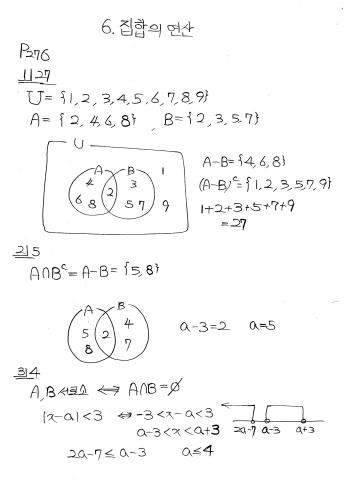 6. 집합의 연산
P276
1) 27
U = {1, 2, 3, 4, 5, 6, 7, 8, 9}
A = {2, 4, 6, 8} , B = {2, 3, 5, 7}
U
A B 1
4 3
6 8 2 5 7 9
A-B = {4, 6, 8}
(A-B)ᶜ = {1, 2, 3, 5, 7, 9}
1+2+3+5+7+9
= 27
2) 5
A∩Bᶜ = A-B = {5, 8}
A B
5 2 4
8 7
a-3=2 a=5
3) 4
A, B 서로소 ⟺ A∩B=∅
|x-a|<3 ⟺ -3<x-a<3
a-3<x<a+3
2a-7 a-3 a+3
2a-7≤a-3 a≤4